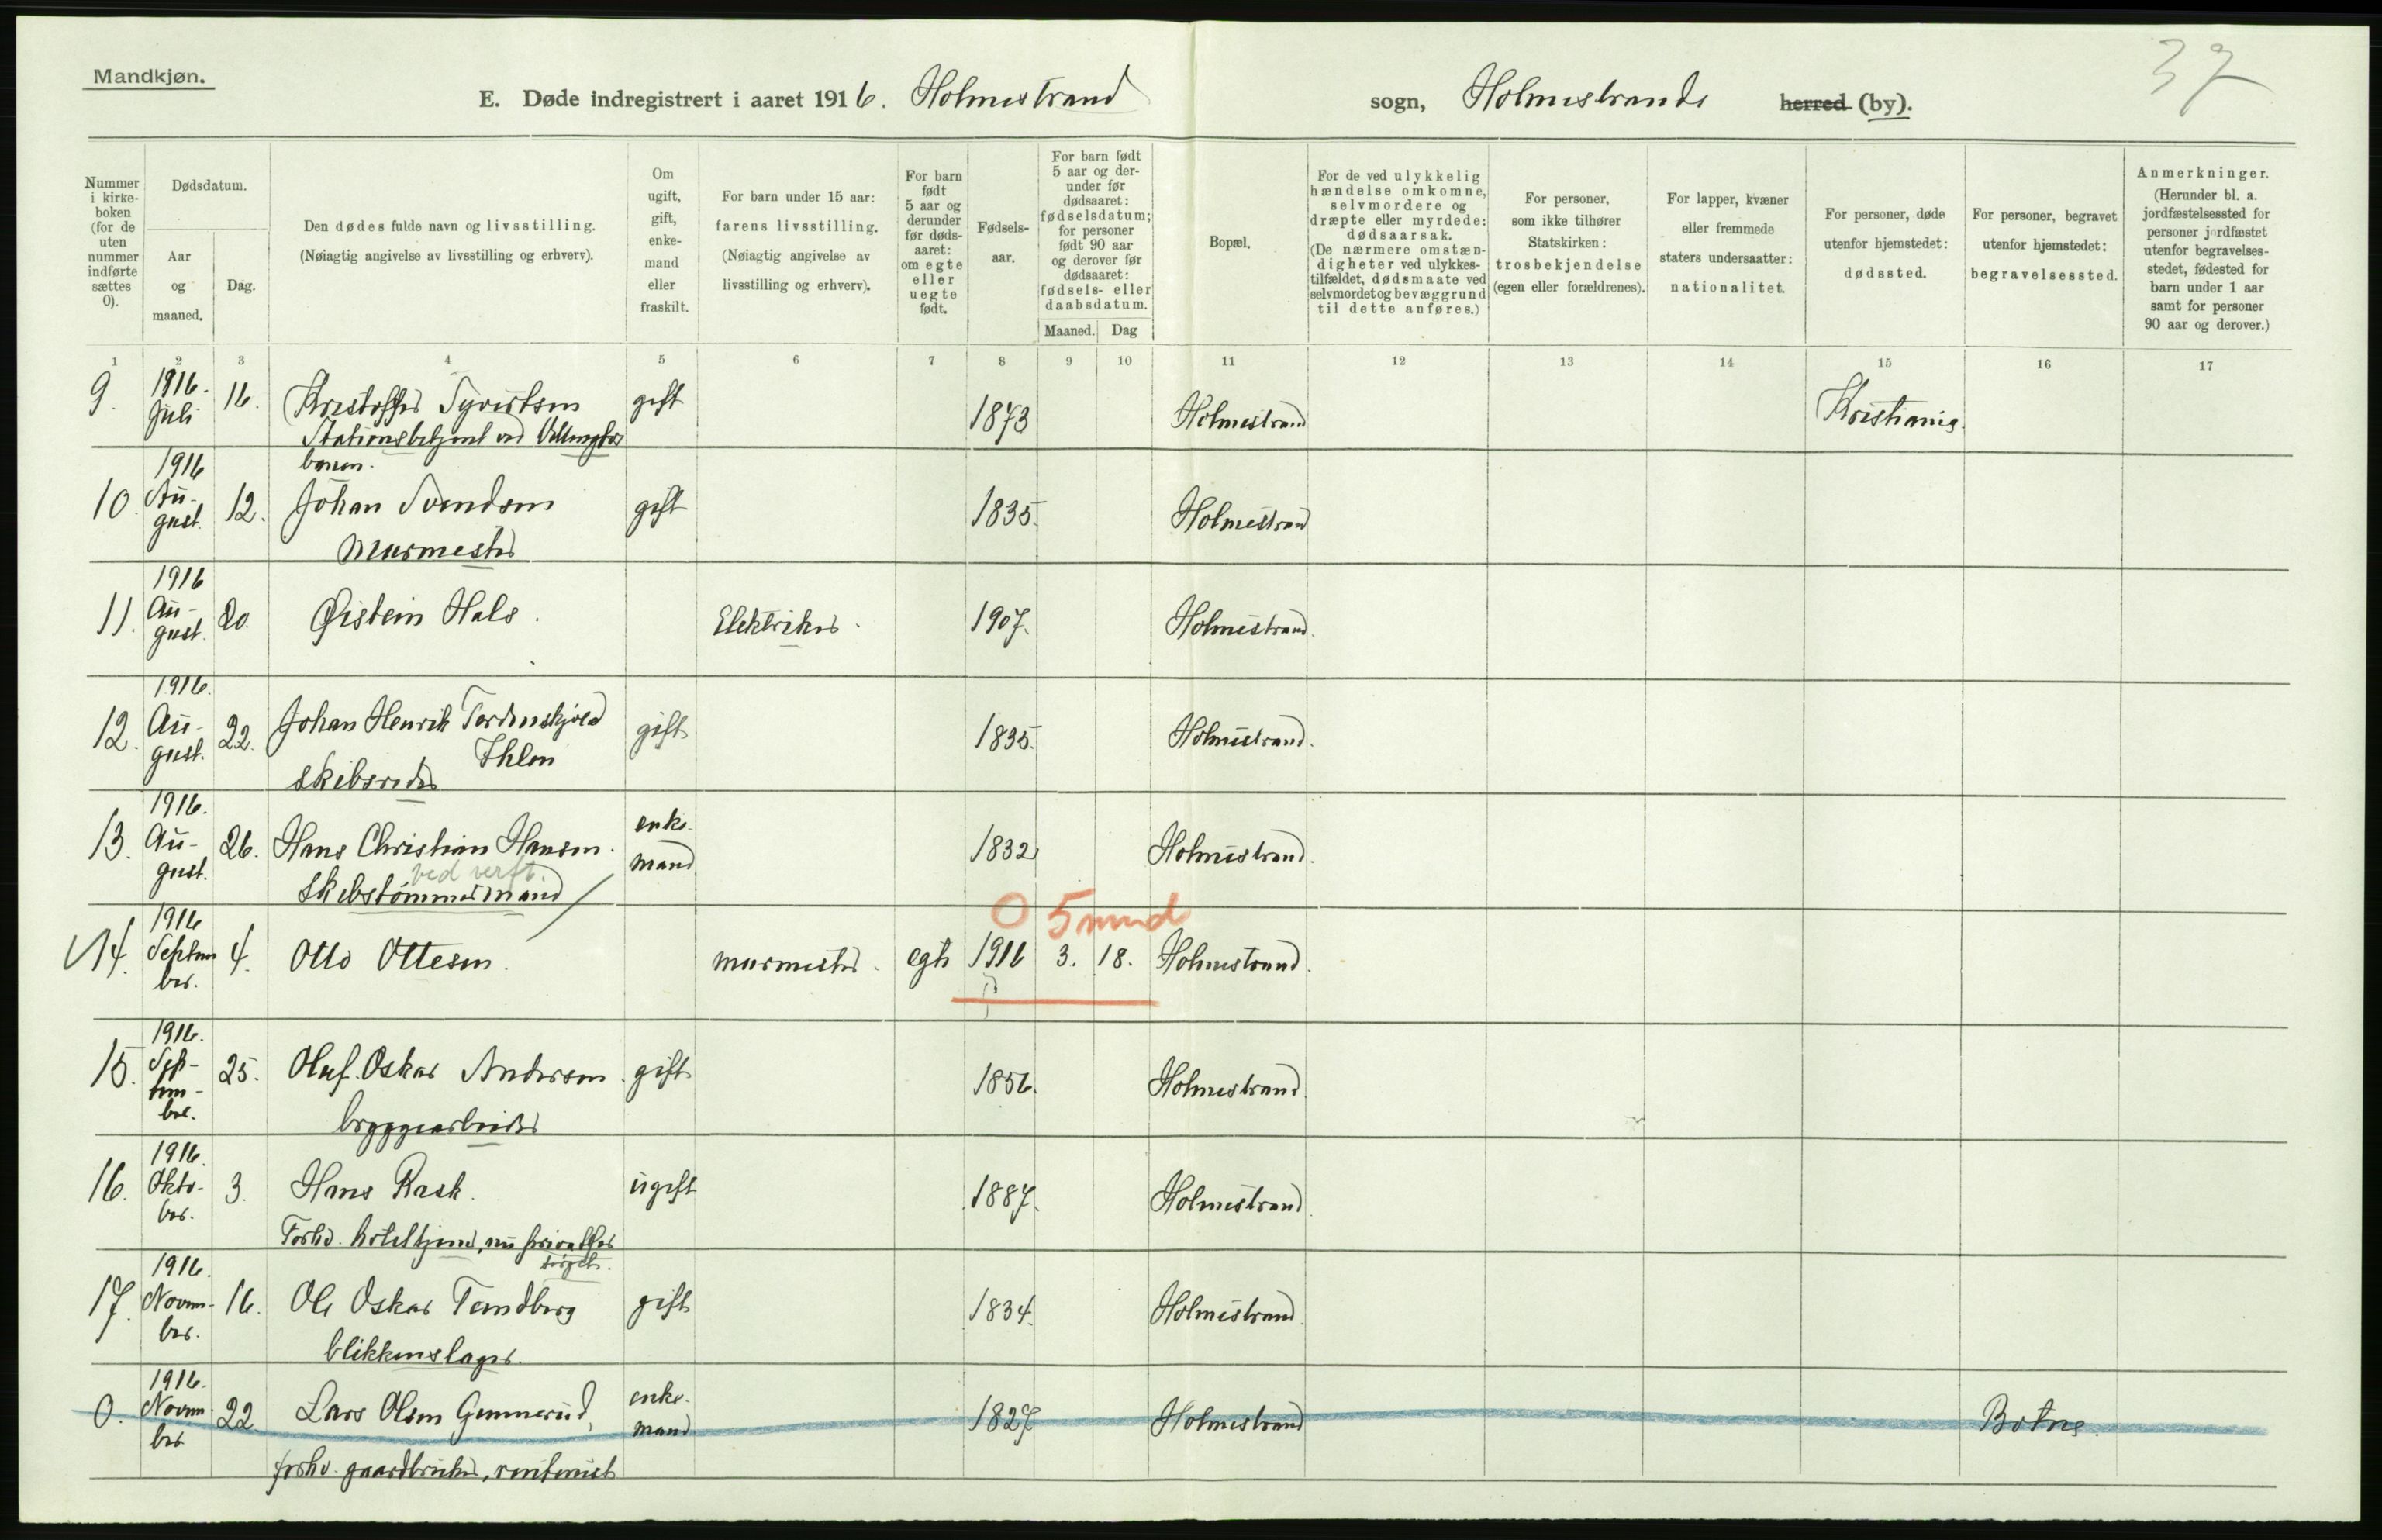 Mandkjøn.
37
E. Døde indregistrert i aaret 1916. Holmestrand sogn, Holmestrands herred (by).
Nummer i kirkeboken (for de uten nummer indførte sættes 0).
Dødsdatum.
Aar og maaned.
Dag.
Den dødes fulde navn og livsstilling. (Nøiagtig angivelse av livsstilling og erhverv).
Om ugift, gift, enkemand eller fraskilt.
For barn under 15 aar: farens livsstilling. (Nøiagtig angivelse av livsstilling og erhverv).
For barn født 5 aar og derunder før dødsaaret: om egte eller uegte født.
Fødselsaar.
For barn født 5 aar og derunder før dødsaaret: fødselsdatum; for personer født 90 aar og derover før dødsaaret: fødsels- eller daabsdatum.
Maaned. Dag
Bopæl.
For de ved ulykkelig hændelse omkomne, selvmordere og dræpte eller myrdede: dødsaarsak. (De nærmere omstændigheter ved ulykkestilfældet, dødsmaate ved selvmordet og bevæggrund til dette anføres.)
For personer, som ikke tilhører Statskirken: trosbekjendelse (egen eller forældrenes).
For lapper, kvæner eller fremmede staters undersaatter: nationalitet.
For personer, døde utenfor hjemstedet: dødssted.
For personer, begravet utenfor hjemstedet: begravelsessted.
Anmerkninger. (Herunder bl. a. jordfæstelsessted for personer jordfæstet utenfor begravelsesstedet, fødested for barn under 1 aar samt for personer 90 aar og derover.)
1 2 3 4 5 6 7 8 9 10 11 12 13 14 15 16 17
9. 1916. Juli 16. Kristoffer Syvertsen gift 1873 Holmestrand Kristiania.
Stationsbetjent ved Vittingfos
banen.
10. 1916 August. 12. Johan Svendsen gift 1835. Holmestrand
Murmester
11. 1916 August. 20. Øistein Hals. Elektriker. 1907. Holmestrand.
12. 1916. August. 22. Johan Henrik Tordenskjold gift 1835. Holmestrand.
Ihlen
Skibsreder
13. 1916. August. 26. Hans Christian Hansen. enkemand 1832 Holmestrand.
ved verft.
Skibstømmermand
5 mnd
14. 1916 September. 4. Otto Ottesen. murmester. egte 1916 3. 18. Holmestrand.
15. 1916. September. 25. Oluf Oskar Andersen. gift 1856. Holmestrand.
bryggearbeider
16. 1916. Oktober. 3. Hans Rask. ugift 1887. Holmestrand.
Forhv. hoteltjener, nu privat for
sørget.
17. 1916. November. 16. Ole Oskar Tandberg gift 1834. Holmestrand.
blikkenslager.
0. 1916. November 22. Lars Olsen Gunnerud, enkemand 1827 Holmestrand Botne.
forhv. gaardbruker, rentenist